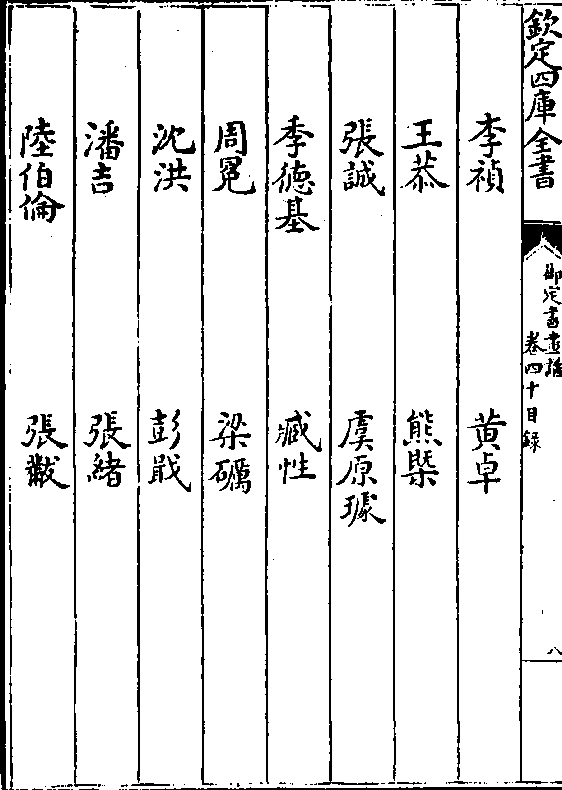 欽定四庫全書
御定書畫譜
卷四十目録
八
李禎 黄卓
王恭 熊槩
張誠 虞原璩
季德基 臧性
周冕 梁礪
沈洪 彭戢
潘吉 張緒
陸伯倫 張黻